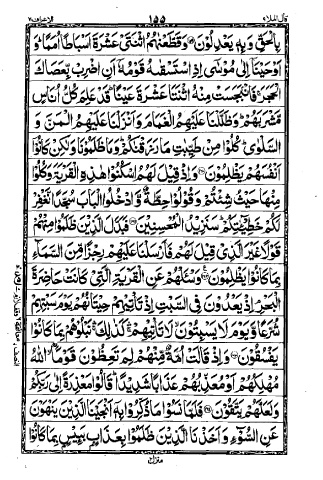 قال الملأ ۹ ۱۵۵ الاعراف ۷
بِالْحَقِّ وَبِهٖ يَعْدِلُوْنَ وَقَطَّعْنٰهُمُ اثْنَتَيْ عَشْرَةَ اَسْبَاطًا اُمَمًا وَ
اَوْحَيْنَاۤ اِلٰى مُوْسٰۤى اِذِ اسْتَسْقٰىهُ قَوْمُهٗۤ اَنِ اضْرِبْ بِّعَصَاكَ
الْحَجَرَ فَانْۢبَجَسَتْ مِنْهُ اثْنَتَا عَشْرَةَ عَيْنًا قَدْ عَلِمَ كُلُّ اُنَاسٍ
مَّشْرَبَهُمْ وَظَلَّلْنَا عَلَيْهِمُ الْغَمَامَ وَاَنْزَلْنَا عَلَيْهِمُ الْمَنَّ وَ
السَّلْوٰى كُلُوْا مِنْ طَيِّبٰتِ مَا رَزَقْنٰكُمْ وَمَا ظَلَمُوْنَا وَلٰكِنْ كَانُوْۤا
اَنْفُسَهُمْ يَظْلِمُوْنَ وَاِذْ قِيْلَ لَهُمُ اسْكُنُوْا هٰذِهِ الْقَرْيَةَ وَكُلُوْا
مِنْهَا حَيْثُ شِئْتُمْ وَقُوْلُوْا حِطَّةٌ وَّادْخُلُوا الْبَابَ سُجَّدًا نَّغْفِرْ
لَكُمْ خَطِيْٓـٰٔتِكُمْ سَنَزِيْدُ الْمُحْسِنِيْنَ فَبَدَّلَ الَّذِيْنَ ظَلَمُوْا مِنْهُمْ
قَوْلًا غَيْرَ الَّذِيْ قِيْلَ لَهُمْ فَاَرْسَلْنَا عَلَيْهِمْ رِجْزًا مِّنَ السَّمَآءِ
بِمَا كَانُوْا يَظْلِمُوْنَ وَسْـَٔلْهُمْ عَنِ الْقَرْيَةِ الَّتِيْ كَانَتْ حَاضِرَةَ
الْبَحْرِ اِذْ يَعْدُوْنَ فِي السَّبْتِ اِذْ تَاْتِيْهِمْ حِيْتَانُهُمْ يَوْمَ سَبْتِهِمْ
شُرَّعًا وَّيَوْمَ لَا يَسْبِتُوْنَ لَا تَاْتِيْهِمْ كَذٰلِكَ نَبْلُوْهُمْ بِمَا كَانُوْا
يَفْسُقُوْنَ وَاِذْ قَالَتْ اُمَّةٌ مِّنْهُمْ لِمَ تَعِظُوْنَ قَوْمَا اللّٰهُ
مُهْلِكُهُمْ اَوْ مُعَذِّبُهُمْ عَذَابًا شَدِيْدًا قَالُوْا مَعْذِرَةً اِلٰى رَبِّكُمْ
وَلَعَلَّهُمْ يَتَّقُوْنَ فَلَمَّا نَسُوْا مَا ذُكِّرُوْا بِهٖۤ اَنْجَيْنَا الَّذِيْنَ يَنْهَوْنَ
عَنِ السُّوْٓءِ وَاَخَذْنَا الَّذِيْنَ ظَلَمُوْا بِعَذَابٍۭ بَـِٔيْسٍۭ بِمَا كَانُوْا
منزل